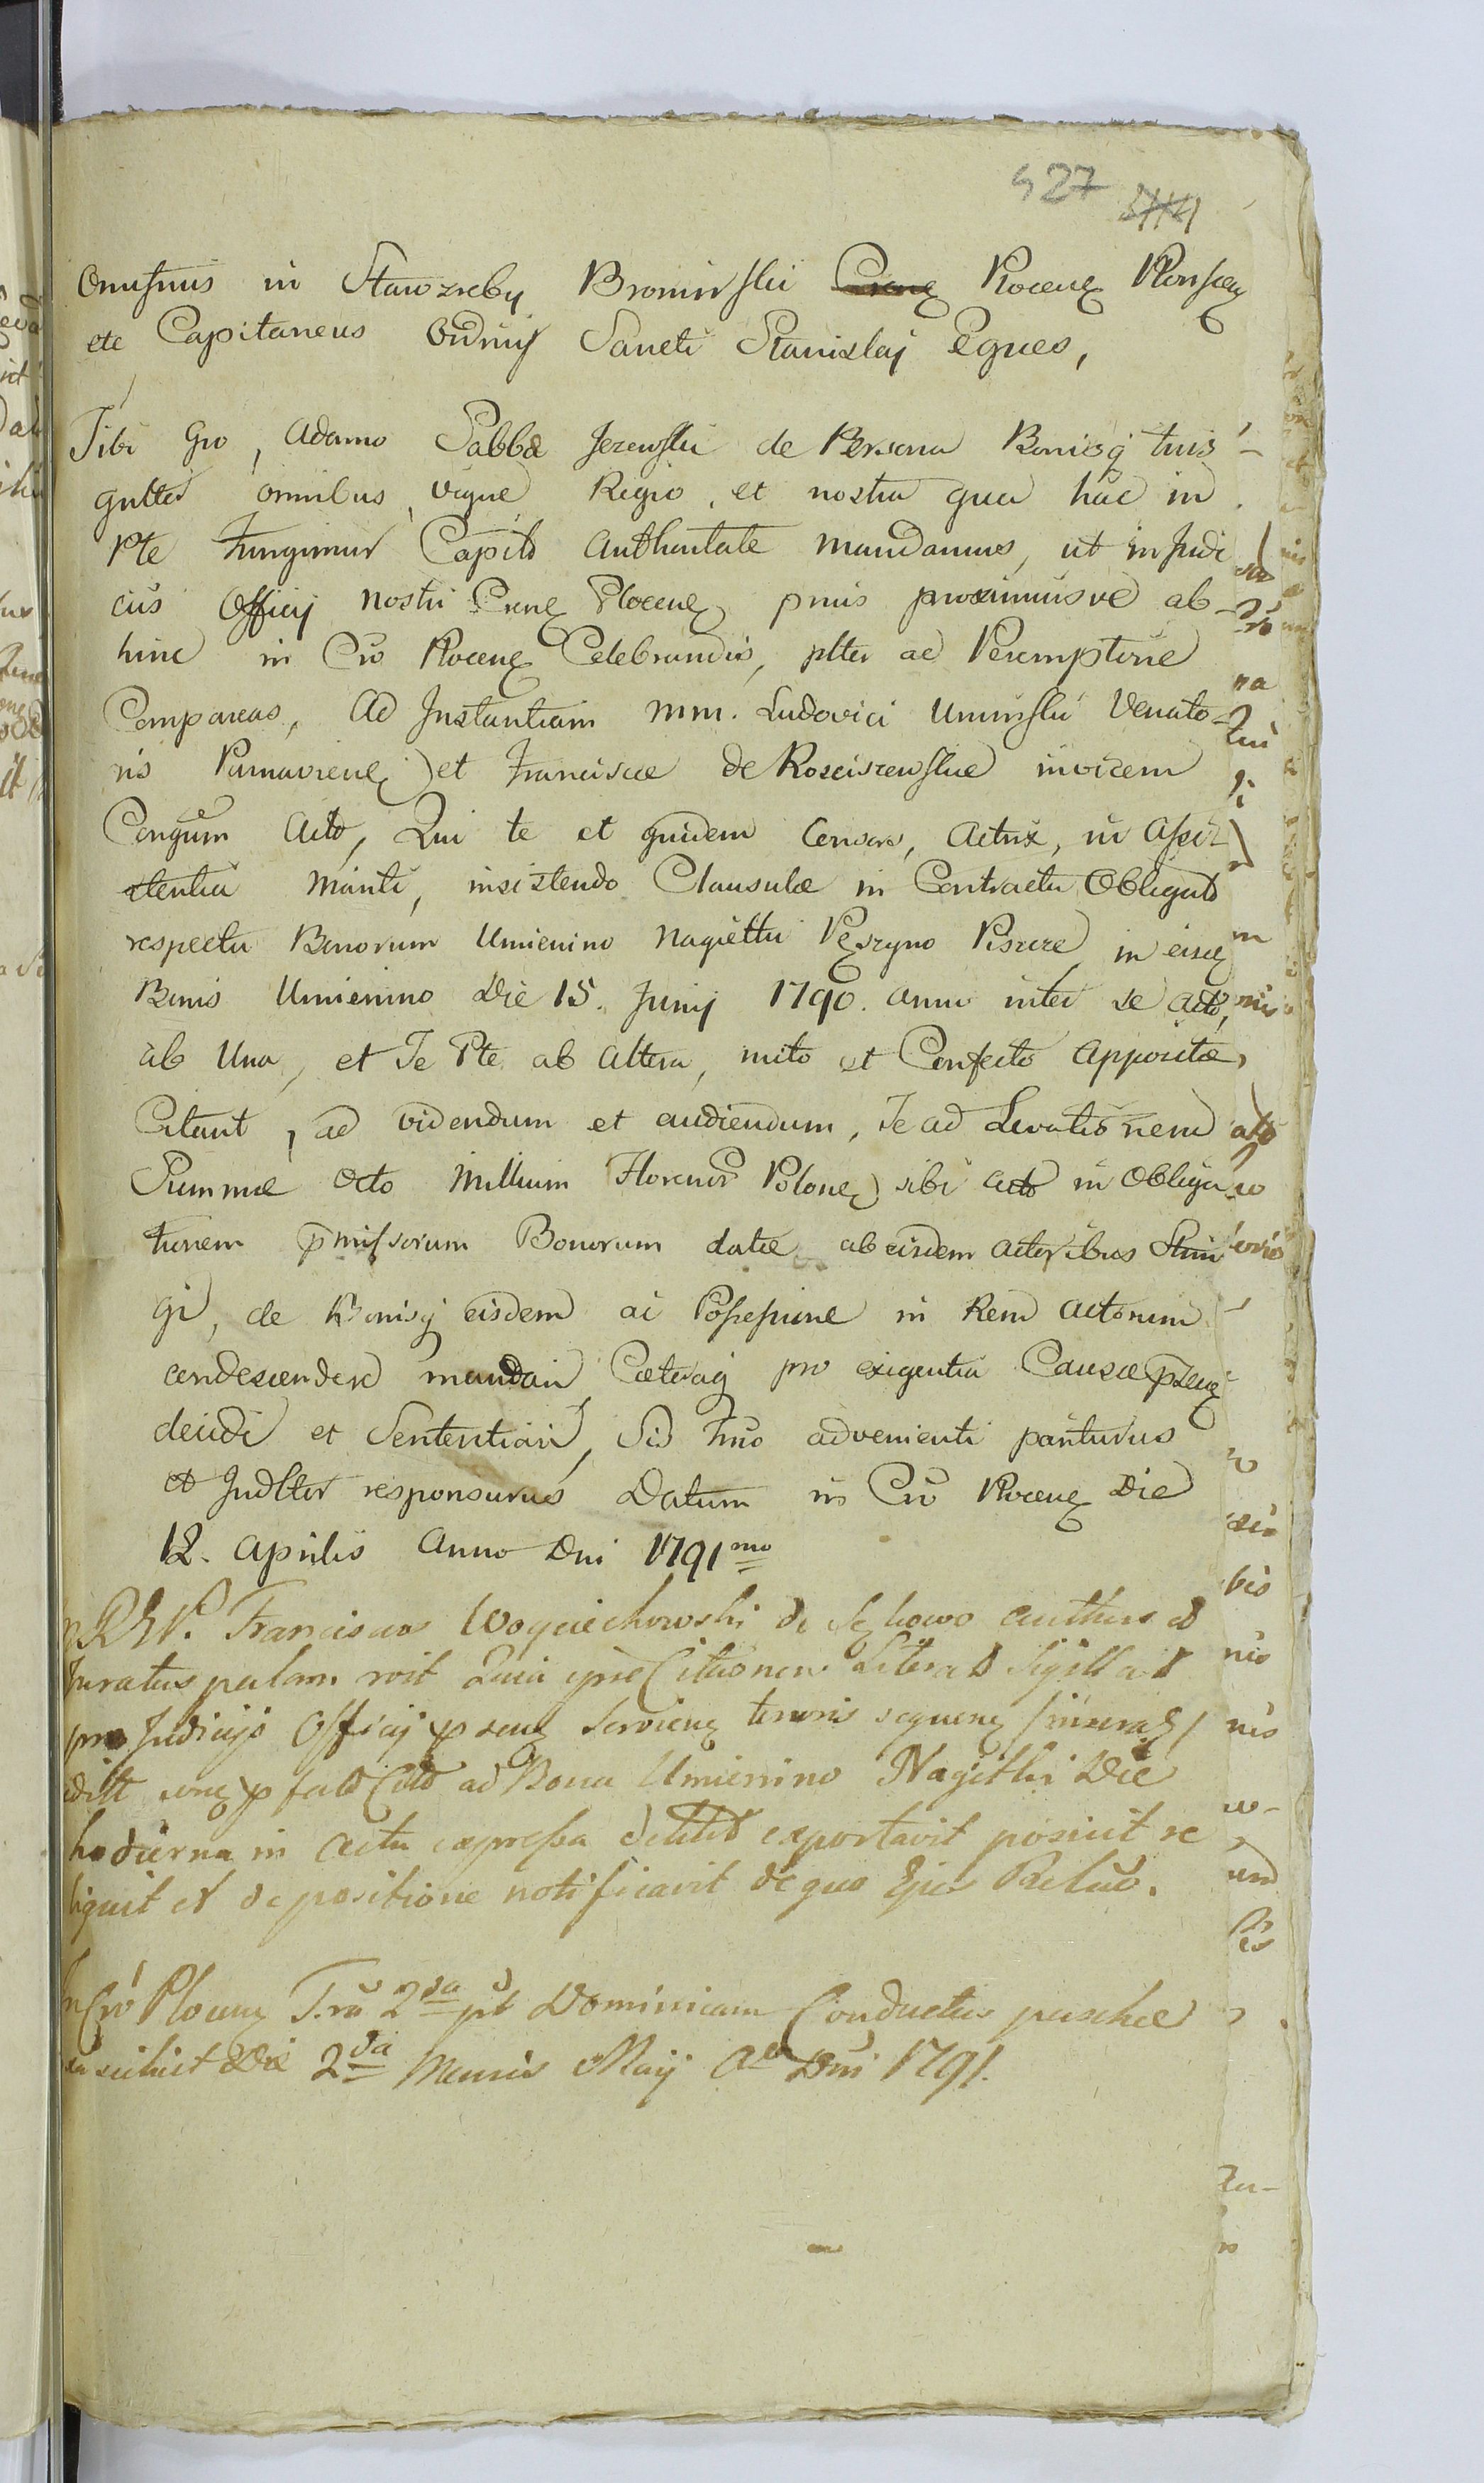 427
Onufrius in Starozreby Bronirski Plocens Plonscens
etc Capitaneus Ordinis Sancti Stanislai Eques,
Tibi Gro, Adamo Sabba Jezewski de Persona Bonisq tuis
gnlter omnibus, vigne Regio, et nostra qua hac in
Pte fungimur Capito Authoritate mandamus, ut in Judi
ciis Officij nostri Crens Plocens pmis proximiisve ab
hinc in Cro Plocens Celebrandis, plter ac Peremptorie
Compareas, Ad Instantiam mm. Ludovici Uminski Venato
ris Parnaviens et Franciscae de Rosciszewskie invicem
Congum Acto, Qui te et quidem Consors, Actrix, in Assi
stentia Mariti, insistendo Clausulae in Contractu Obligato
respectu Bonorum Umienino Nagietki Peszyno Piszcze in eisq
Bonis Umienino Die 15. Junij 1790. anno inter se Acto,
ab Una, et Te Pte ab Altera, inito et Confecto Appositae,
Citant, ad videndum et audiendum, Te ad Levationem
Summae Octo Millium Florenor Polone sibi Acto in Obliga
tionem pmissorum Bonorum datae ab eisdem Actoribus Strin
gi, de Bonisq eisdem ac Possessione in Rem Actorum
condescendere mandari Caeteraq pro exigentia Causae psens
decidi et Sententiari, Sis Trno advenienti pariturus
et Judlter responsurus Datum in Cro Plocens Die
12. Aprilis Anno Dni 1791mo
Franciscus Woyciechowski de authen et
Juratus palam roit Quia ipse Citaonem Literat Sigillat
pro Judicijs Officij pseus Serviens tenoris sequens
Cito ad Bona Umienino Nagietki Die
hodierna in Actu expressa detulit exportavit posuit re
liquit et depositione notificavit de quo Ejus Relao.
In Cro Plocens T.ria 2da pt Dominicam Conductus paschae
scilicet Die 2da Mensis Maij Ao Dni 1791.